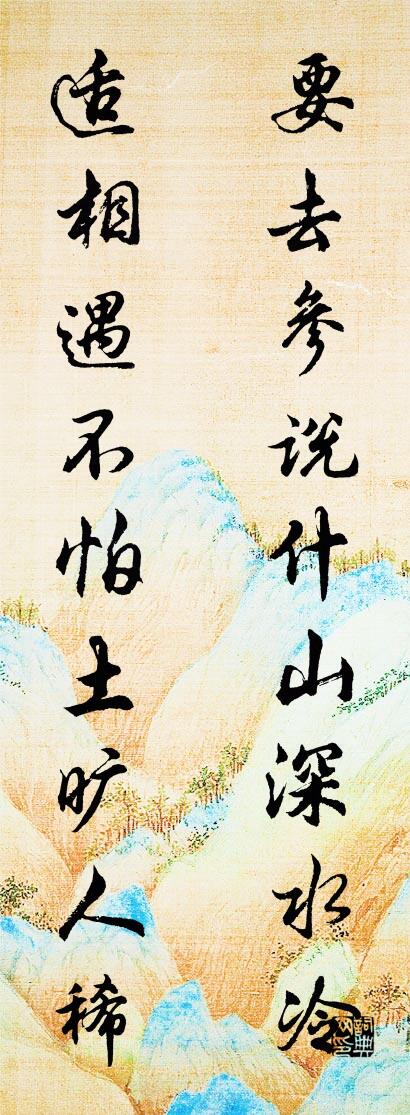 要去参说什山深水冷
适相遇不怕土旷人稀
词典网印